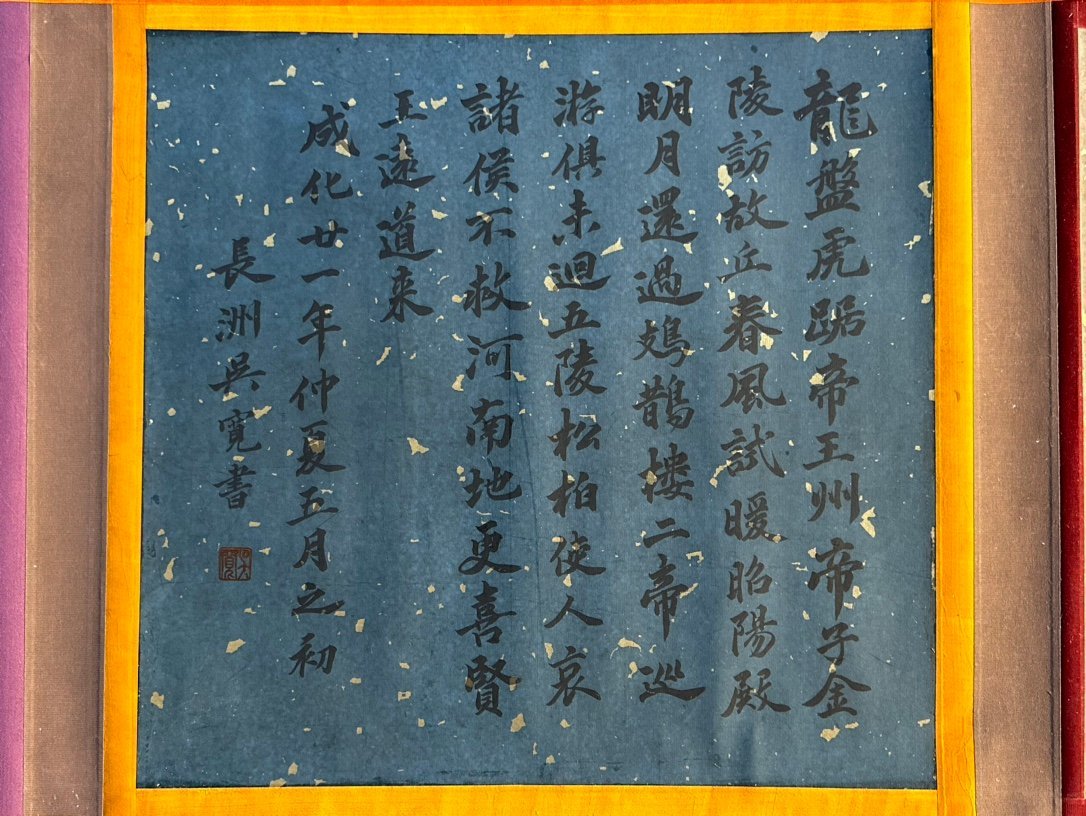 龍盤虎踞帝王州帝子金
陵訪故丘春風試暖昭陽殿
明月還過鳷鵲樓二帝巡
游俱未迴五陵松柏使人哀
諸侯不救河南地更喜賢
王遠道来
成化廿一年仲夏五月之初
長洲吳寬書